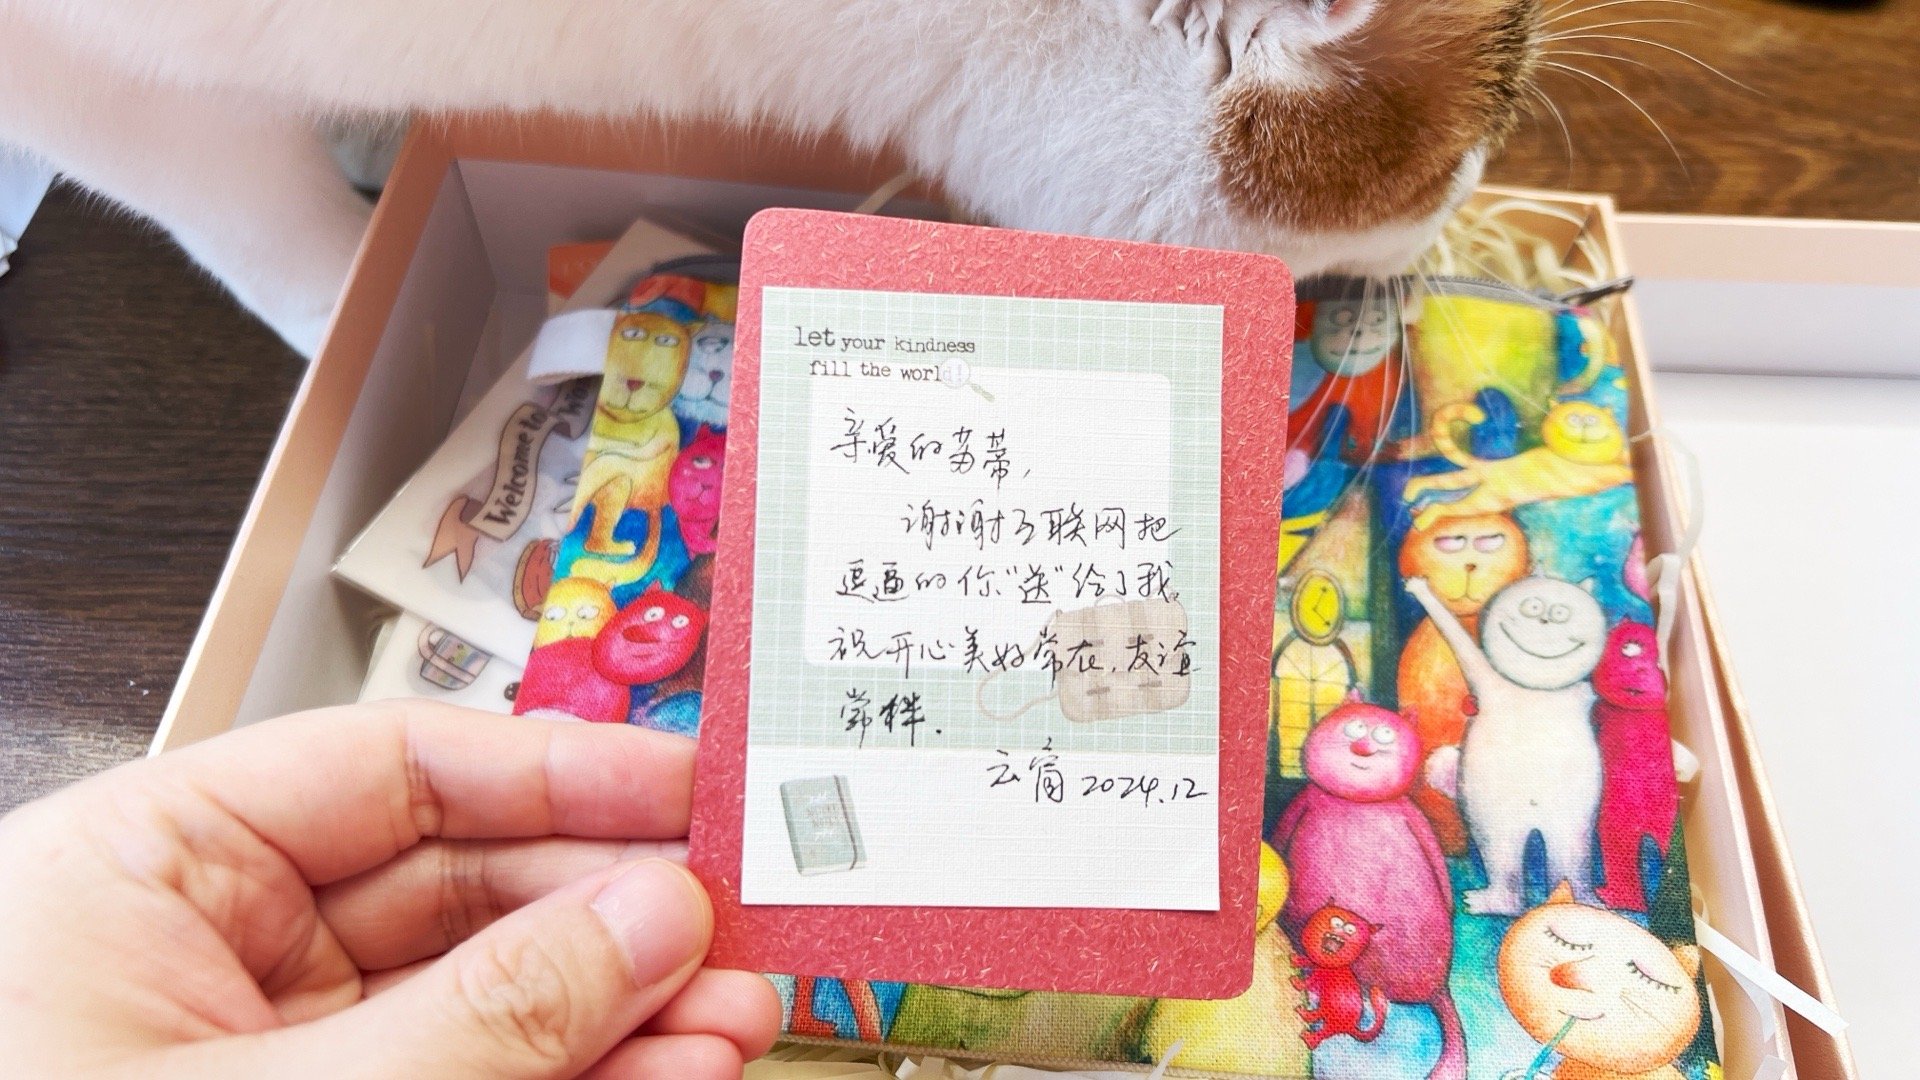 let your kindness
fill the world!
亲爱的苏蒂，
谢谢互联网把
逗逼的你“送”给了我。
祝开心美好常在，友谊
常伴.
云窗 2024.12
Welcome to